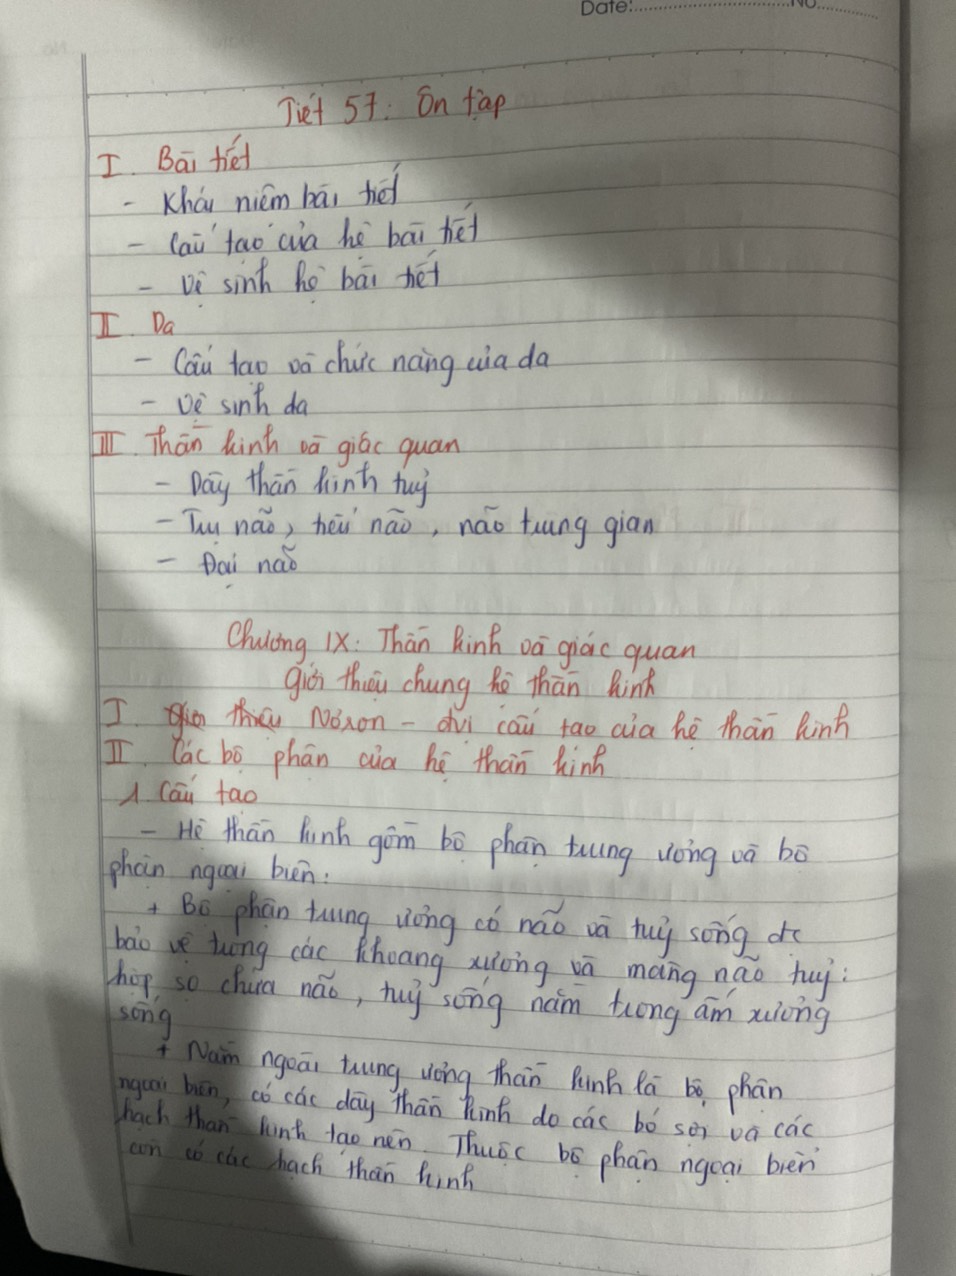 Date: No
Tiết 57: Ôn tập
I. Bài tiết
- Khái niệm bài tiết
- Cấu tạo của hệ bài tiết
- Vệ sinh hệ bài tiết
II. Da
- Cấu tạo và chức năng của da
- Vệ sinh da
III. Thần kinh và giác quan
- Dây thần kinh tuỷ
- Trụ não, tiểu não, não trung gian
- Đại não
Chương IX: Thần kinh và giác quan
Giới thiệu chung hệ thần kinh
I. Giới thiệu Nơron - đvị cấu tạo của hệ thần kinh
II. Các bộ phận của hệ thần kinh
1. Cấu tạo
- Hệ thần kinh gồm bộ phận trung ương và bộ
phận ngoại biên:
+ Bộ phận trung ương có não và tuỷ sống đc
bảo vệ trong các khoang xương và màng não tuỷ:
hộp sọ chứa não, tuỷ sống nằm trong ấm xương
sống
+ Nằm ngoài trung ương thần kinh là bộ phận
ngoại biên, có các dây thần kinh do các bó sợi và các
hạch thần kinh tạo nên. Thuộc bộ phận ngoại biên
còn có các hạch thần kinh